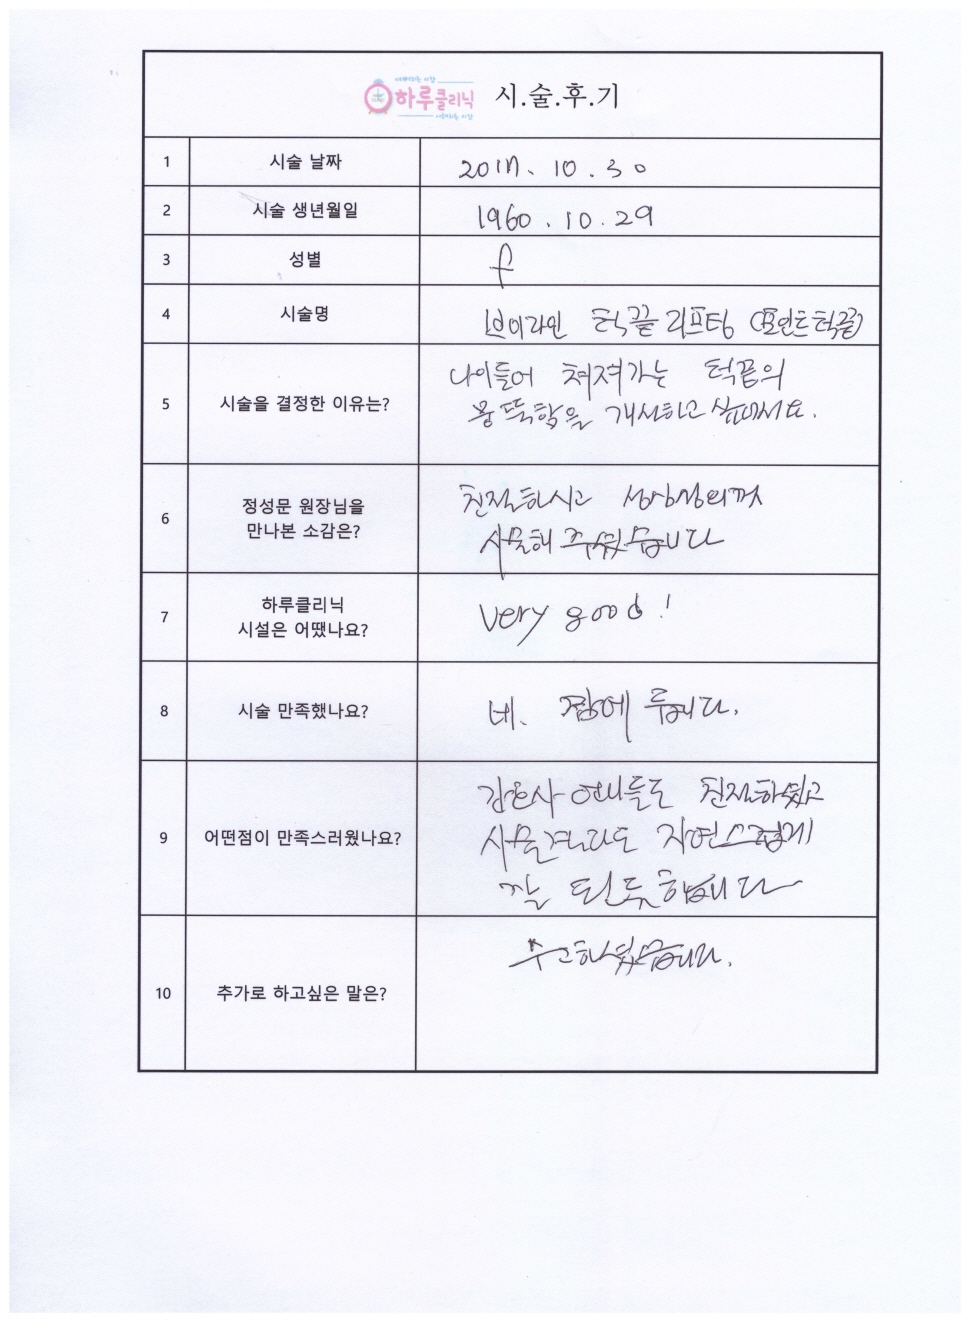 하루클리닉 시.술.후.기
1 시술 날짜 2017. 10. 30
2 시술 생년월일 1960. 10. 29
3 성별 f
4 시술명 브이라인 턱끝 리프팅 (포인트턱끝)
5 시술을 결정한 이유는?
나이들어 쳐져가는 턱끝의
뭉뚝함을 개선하고 싶어서요.
6 정성문 원장님을
만나본 소감은?
친절하시고 성심성의껏
시술해 주셨습니다
7 하루클리닉
시설은 어땠나요?
very good!
8 시술 만족했나요? 네. 맘에 듭니다.
9 어떤점이 만족스러웠나요?
간호사 언니들도 친절하셨고
시술결과도 자연스럽게
잘 된듯합니다
10 추가로 하고싶은 말은?
수고하셨습니다.